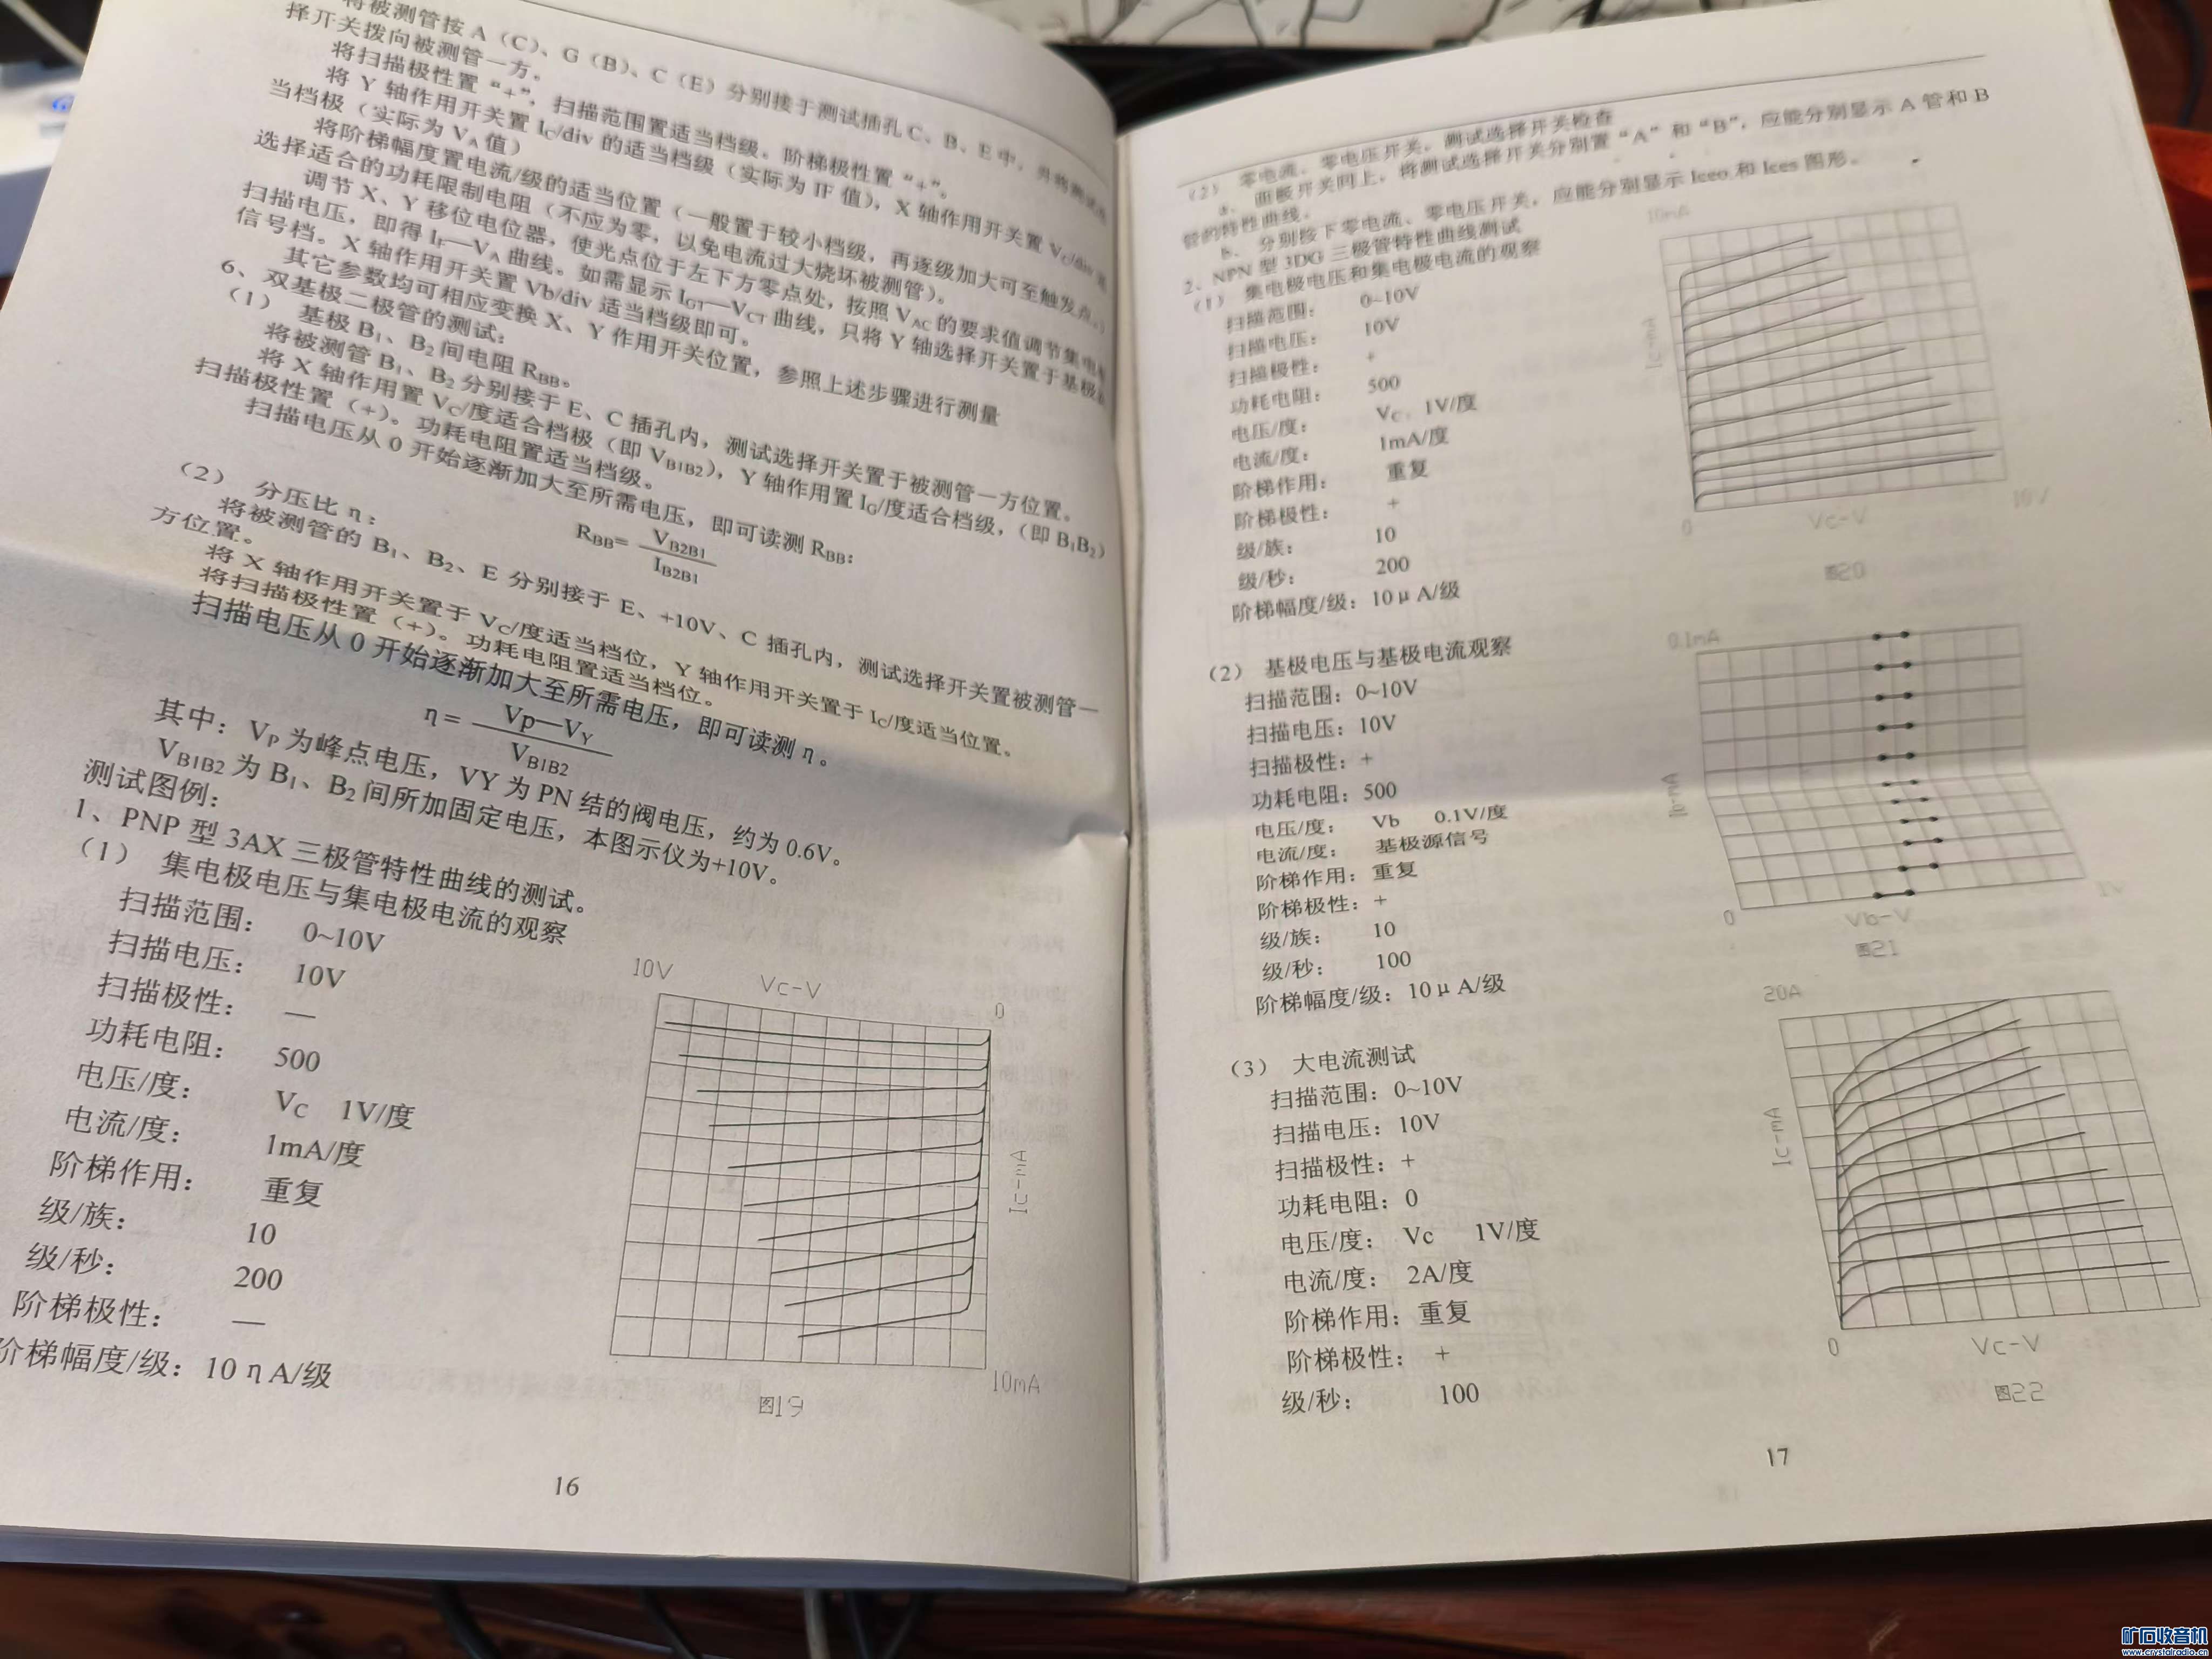 将被测管按 A（C）、G（B）、C（E）分别接于测试插孔 C、B、E 中，
择开关拨向被测管一方。
将扫描极性置“+”，扫描范围置适当档级，阶梯极性置“+”。
将 Y 轴作用开关置 IC/div 的适当档级（实际为 IF 值），X 轴作用开关置 VC/div
当档极（实际为 VA 值）
将阶梯幅度置电流/级的适当位置（一般置于较小档级，再逐级加大可至触发点。）
选择适合的功耗限制电阻（不应为零，以免电流过大烧坏被测管）。
调节 X、Y 移位电位器，使光点位于左下方零点处，按照 VAC 的要求值调节集电极
扫描电压，即得 IF—VA 曲线。如需显示 IGT—VCT 曲线，只将 Y 轴选择开关置于基极
信号档。X 轴作用开关置 Vb/div 适当档级即可。
其它参数均可相应变换 X、Y 作用开关位置，参照上述步骤进行测量
6、双基极二极管的测试：
（1） 基极 B1、B2 间电阻 RBB。
将被测管 B1、B2 分别接于 E、C 插孔内，测试选择开关置于被测管一方位置。
将 X 轴作用置 VC/度适合档极（即 VB1B2），Y 轴作用置 IG/度适合档级，（即 B1B2）
扫描极性置（+）。功耗电阻置适当档级。
扫描电压从 0 开始逐渐加大至所需电压，即可读测 RBB：
RBB= VB2B1
IB2B1
（2） 分压比 η：
将被测管的 B1、B2、E 分别接于 E、+10V、C 插孔内，测试选择开关置被测管一
方位置。
将 X 轴作用开关置于 VC/度适当档位，Y 轴作用开关置于 IC/度适当位置。
将扫描极性置（+）。功耗电阻置适当档位。
扫描电压从 0 开始逐渐加大至所需电压，即可读测 η。
η= Vp—VY
VB1B2
其中：VP 为峰点电压，VY 为 PN 结的阀电压，约为 0.6V。
VB1B2 为 B1、B2 间所加固定电压，本图示仪为+10V。
测试图例：
1、PNP 型 3AX 三极管特性曲线的测试。
（1） 集电极电压与集电极电流的观察
扫描范围： 0~10V
扫描电压： 10V
扫描极性： —
功耗电阻： 500
电压/度： VC 1V/度
电流/度： 1mA/度
阶梯作用： 重复
级/族： 10
级/秒： 200
阶梯极性： —
阶梯幅度/级：10 η A/级
10V Vc-V 0
Ic-mA
10mA
图19
16
（2） 零电流、零电压开关，测试选择开关检查
a、 面板开关同上，将测试选择开关分别置“A”和“B”，应能分别显示 A 管和 B
管的特性曲线。
b、 分别按下零电流、零电压开关，应能分别显示 Iceo 和 Ices 图形。
2、NPN 型 3DG 三极管特性曲线测试
（1） 集电极电压和集电极电流的观察
扫描范围： 0~10V
扫描电压： 10V
扫描极性： +
功耗电阻： 500
电压/度： VC，1V/度
电流/度： 1mA/度
阶梯作用： 重复
阶梯极性： +
级/族： 10
级/秒： 200
阶梯幅度/级：10 μ A/级
10mA
Ic-mA
0 Vc-V 10V
图20
（2） 基极电压与基极电流观察
扫描范围：0~10V
扫描电压：10V
扫描极性：+
功耗电阻：500
电压/度： Vb 0.1V/度
电流/度： 基极源信号
阶梯作用：重复
阶梯极性：+
级/族： 10
级/秒： 100
阶梯幅度/级：10 μ A/级
0.1mA
Ib-mA
0 Vb-V 1V
图21
（3） 大电流测试
扫描范围：0~10V
扫描电压：10V
扫描极性：+
功耗电阻：0
电压/度： Vc 1V/度
电流/度： 2A/度
阶梯作用：重复
阶梯极性： +
级/秒： 100
20A
Ic-mA
0 Vc-V
图22
17
矿石收音机
www.crystalradio.cn